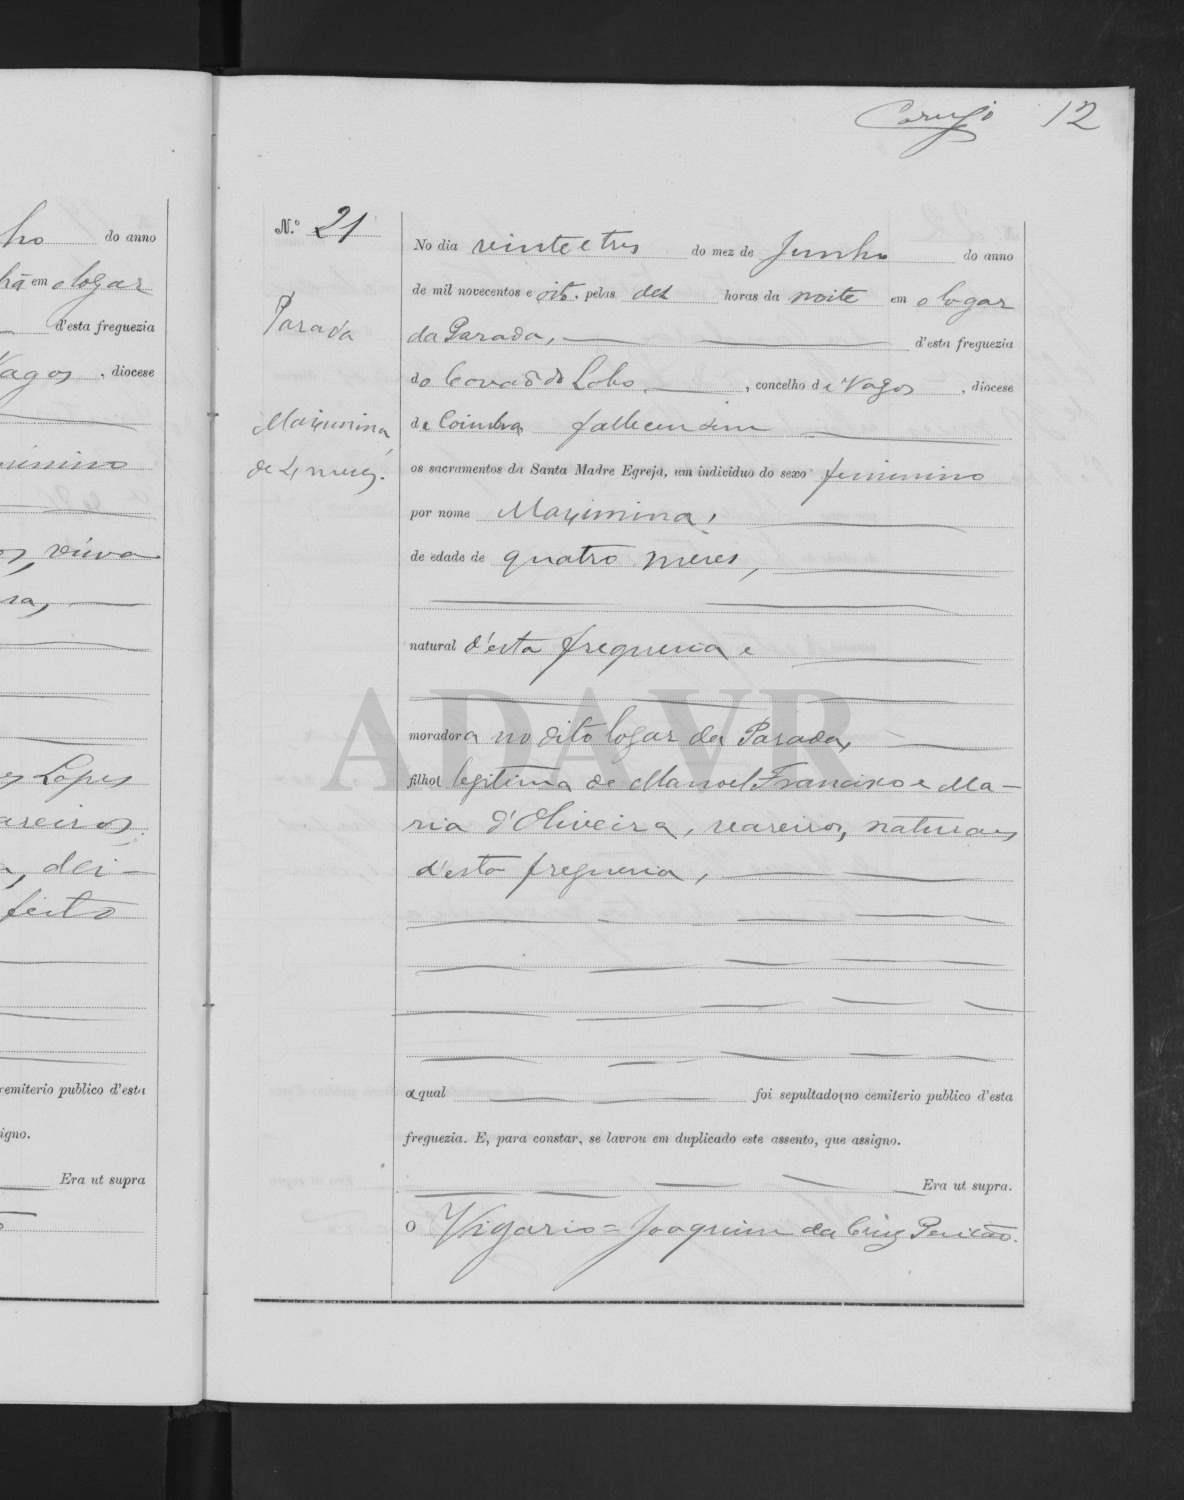 ho do anno
hã em o logar
d'esta freguezia
Vagos, diocese
minino
os, viuva
ra,
es Lopes
areiros,
a, dei-
feito
cemiterio publico d'esta
signo.
Era ut supra
12
N.º 21
Parada
Maximina
de 4 mezes.
No dia vinte e tres do mez de Junho do anno
de mil novecentos e oito, pelas dez horas da noite em o logar
da Parada, d'esta freguezia
do Covão do Lobo, concelho de Vagos, diocese
de Coimbra falleceu sem
os sacramentos da Santa Madre Egreja, um individuo do sexo feminino
por nome Maximina,
de edade de quatro mezes,
natural d'esta freguezia e
moradora no dito logar da Parada,
filha legitima de Manoel Francisco e Ma-
ria d'Oliveira, seareiros, naturaes
d'esta freguezia,
a qual foi sepultado no cemiterio publico d'esta
freguezia. E, para constar, se lavrou em duplicado este assento, que assigno.
Era ut supra.
O Vigario = Joaquim da Cruz Pericão.
ADAVR